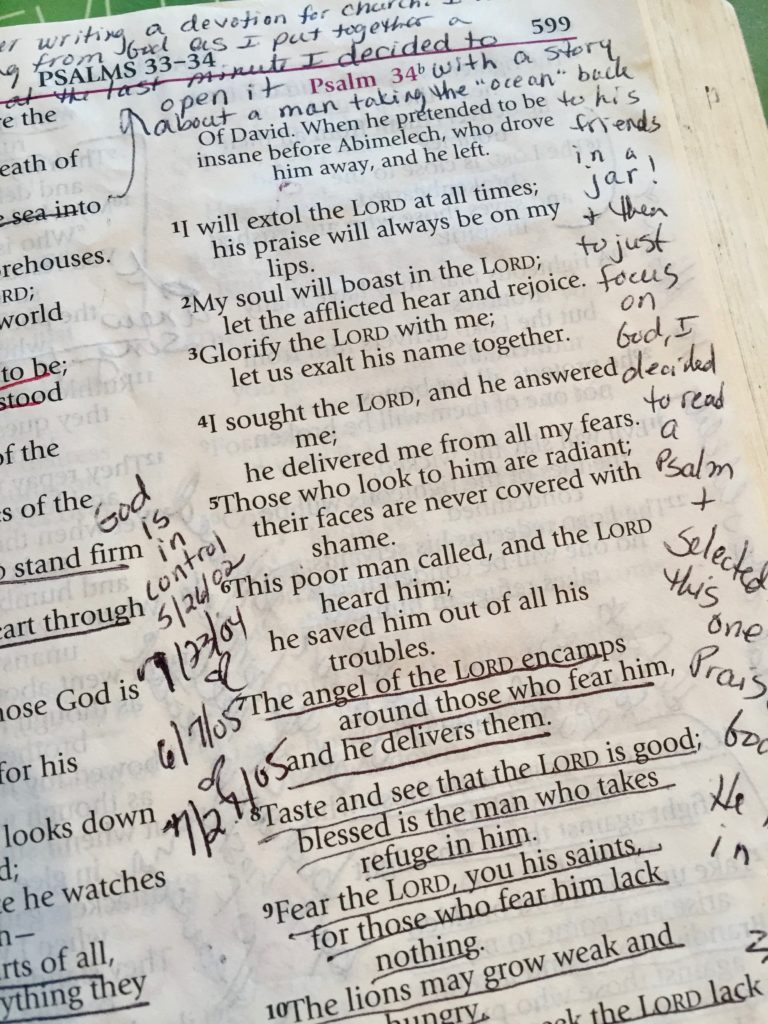 er writing a devotion for church. I
g from God as I put together a
599
PSALMS 33–34
at the last minute I decided to
open it Psalm 34b with a story
about a man taking the "ocean" back
to his
friends
in a
jar!
+ then
to just
focus
on
God, I
decided
to read
a
Psalm
+
selected
this
one
Prais
God
He
in
e the
eath of
e sea into
rehouses.
RD;
world
to be;
stood
of the
s of the
o stand firm
eart through
hose God is
for his
looks down
d;
e he watches
n—
rts of all,
ything they
God
is
in
control
5/26/02
9/23/04
of
6/7/05
of
Of David. When he pretended to be
insane before Abimelech, who drove
him away, and he left.
1I will extol the LORD at all times;
his praise will always be on my
lips.
2My soul will boast in the LORD;
let the afflicted hear and rejoice.
3Glorify the LORD with me;
let us exalt his name together.
4I sought the LORD, and he answered
me;
he delivered me from all my fears.
5Those who look to him are radiant;
their faces are never covered with
shame.
6This poor man called, and the LORD
heard him;
he saved him out of all his
troubles.
7The angel of the LORD encamps
around those who fear him,
and he delivers them.
8Taste and see that the LORD is good;
blessed is the man who takes
refuge in him.
9Fear the LORD, you his saints,
for those who fear him lack
nothing.
10The lions may grow weak and
hungry,
the LORD lack